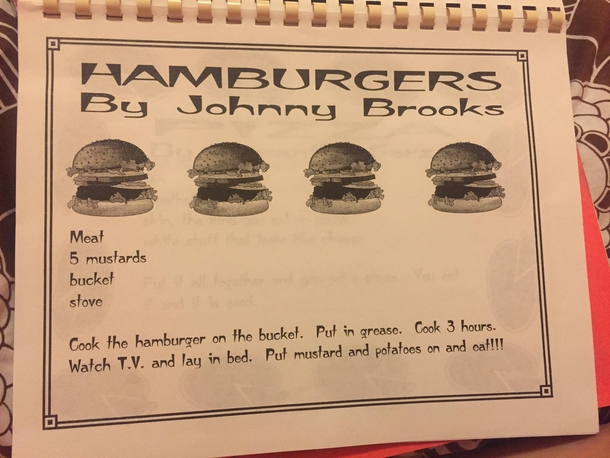 HAMBURGERS
By Johnny Brooks
Meat
5 mustards
bucket
stove
Cook the hamburger on the bucket. Put in grease. Cook 3 hours.
Watch T.V. and lay in bed. Put mustard and potatoes on and eat!!!